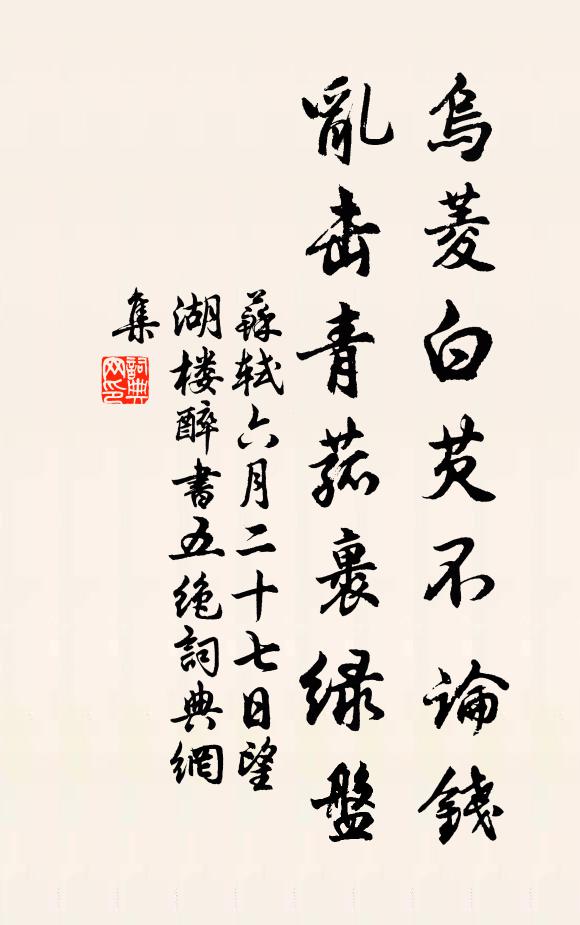 烏菱白芡不論錢
亂击青菰裹緑盤
蘇軾六月二十七日望
湖楼醉書五絶詞典網
集
詞典网印